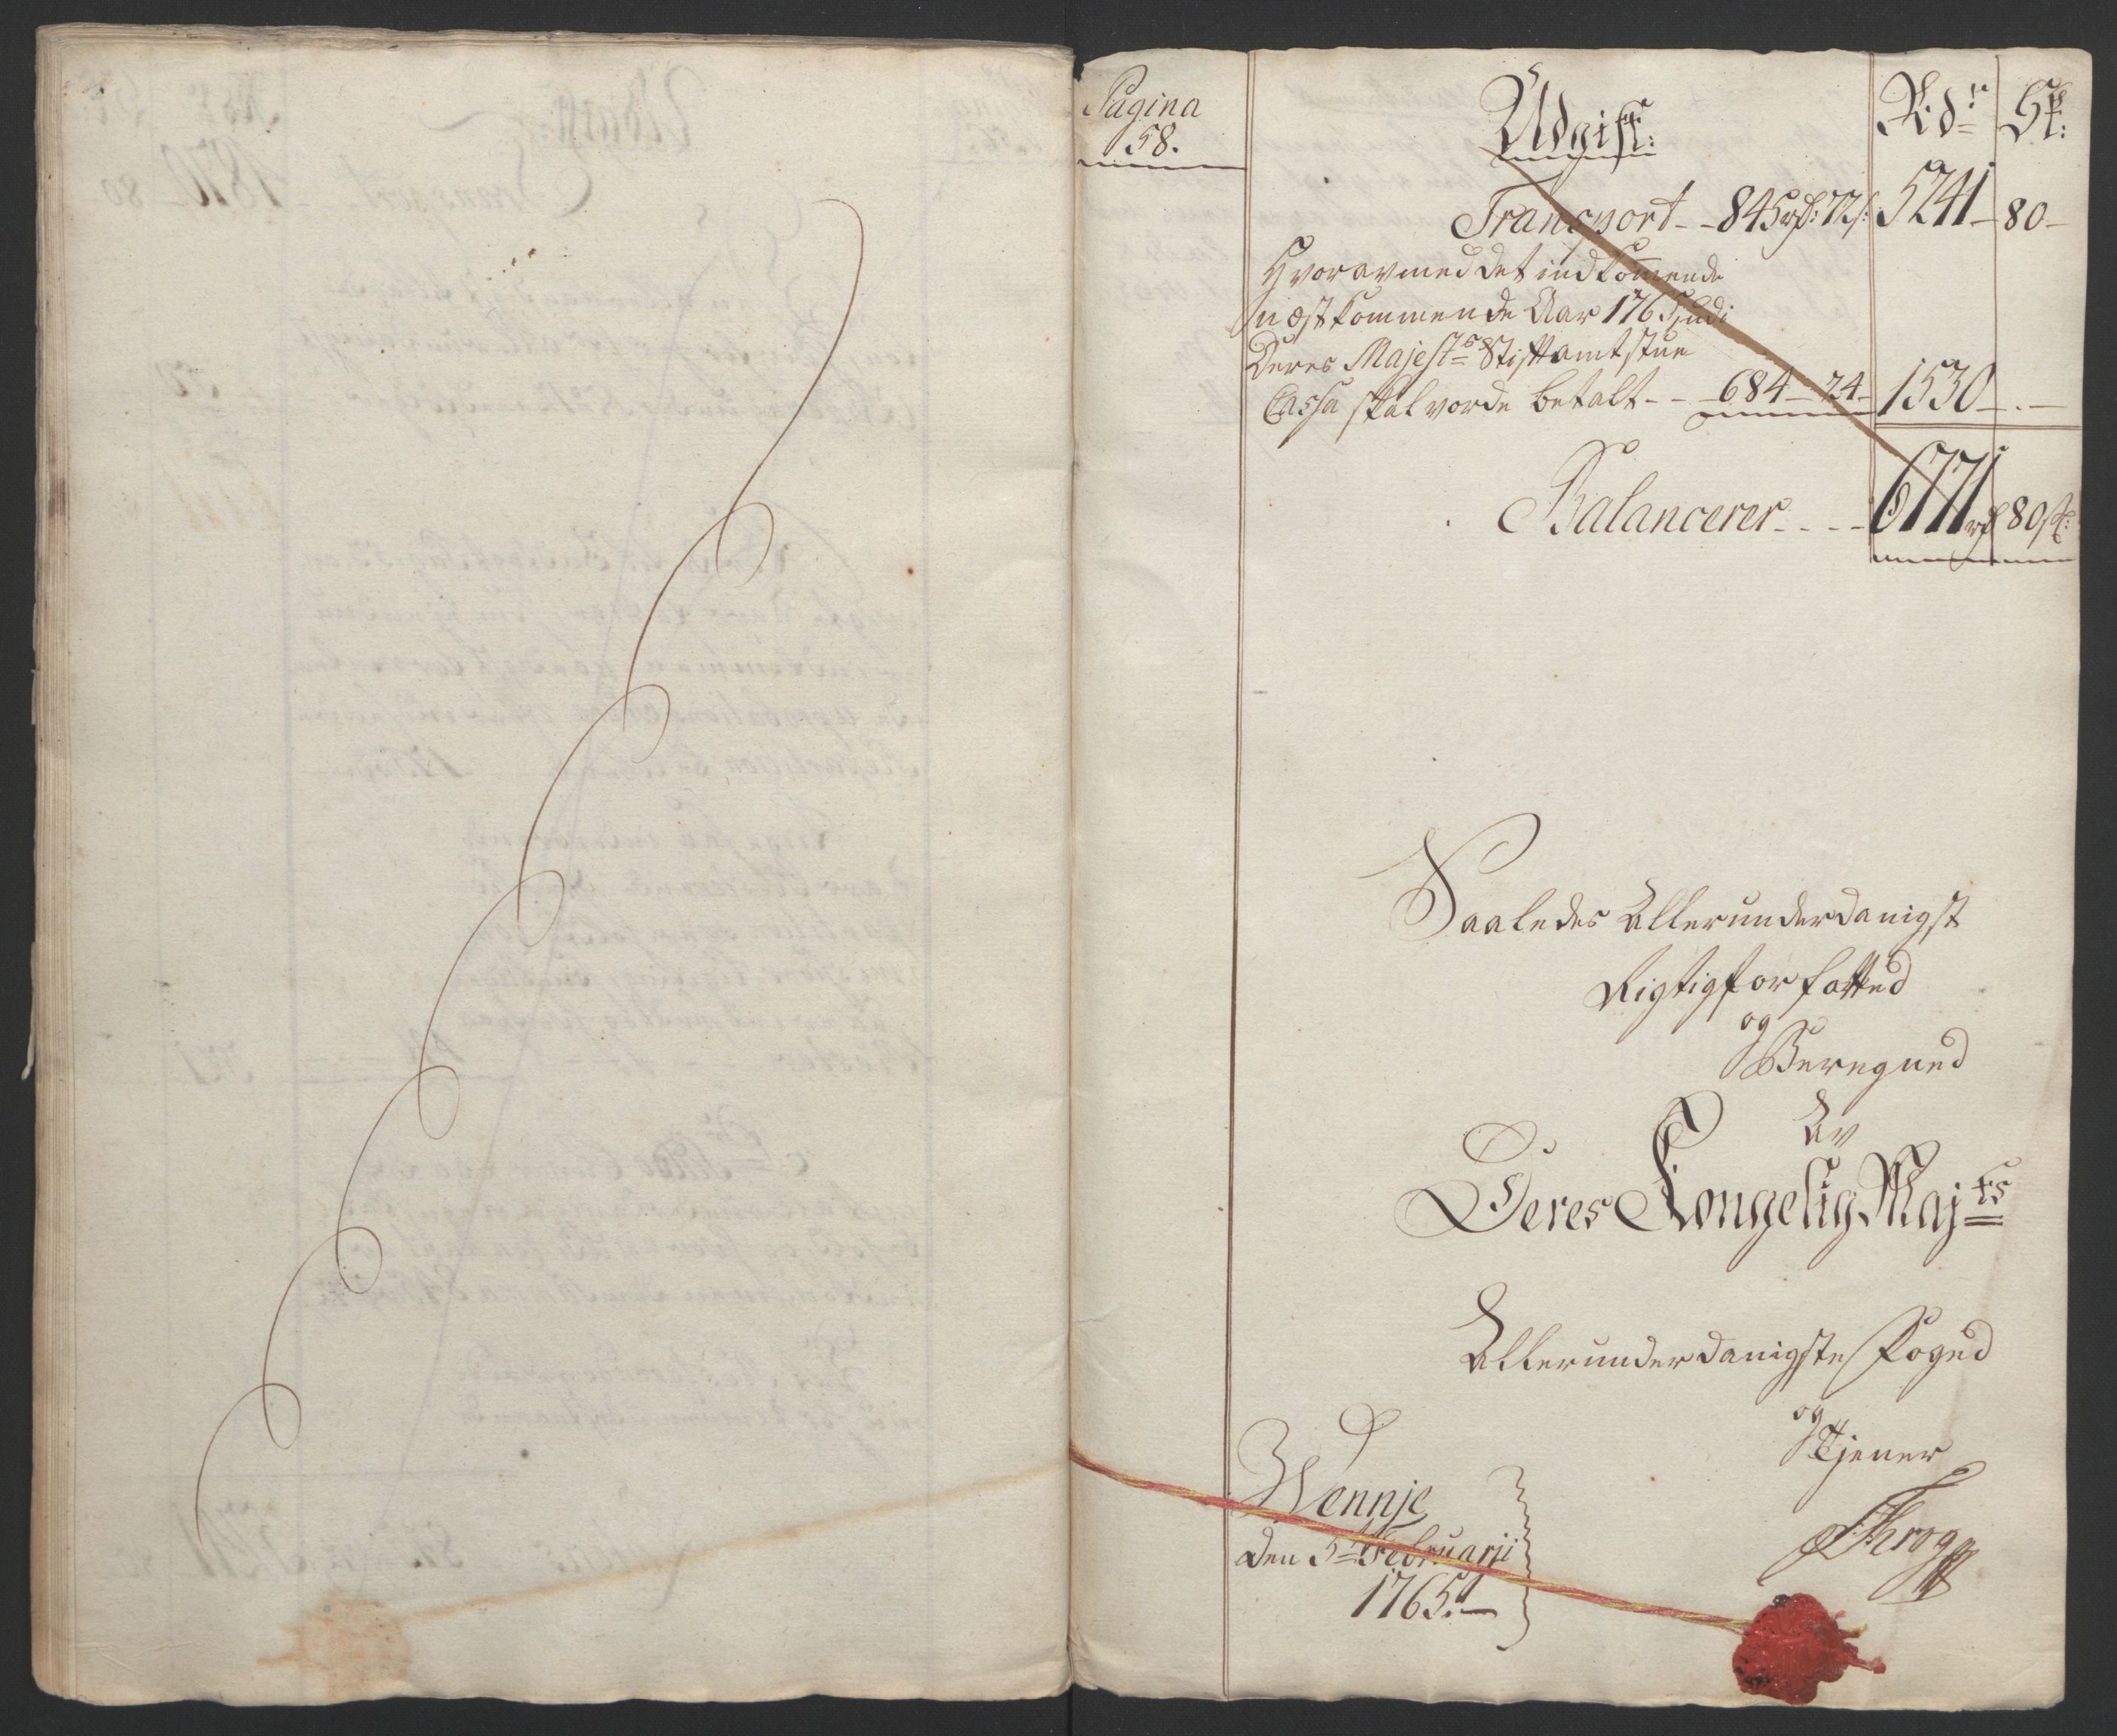 Pagina
58.
Udgift:
Rdr
Sk:
Transport - - 845 rd: 72 s: 5241 - 80 -
Hvorav med det indkommende
næstkommende Aar 1765 udi
Deres Majestts Stiftamtstue
Cassa skal vorde betalt - - 684 - 24 - 1530 - . -
Balancerer - - - - 6771 rd 80 sk:
Saaledes Allerunderdanigst
Rigtig forfatted
og
Beregned
Av
Deres Kongelig Majts
Allerunderdanigste Foged
og
Tjener
Wennje
den 5t Februarji
1765. -